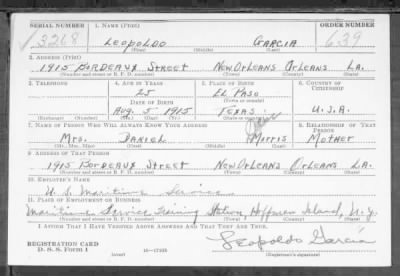 SERIAL NUMBER 1. NAME (Print) ORDER NUMBER
3268 LEOPOLDO GARCIA 639
(First) (Middle) (Last)
2. ADDRESS (Print)
1915 BORDEAUX STREET NEW ORLEANS ORLEANS LA.
(Number and street or R. F. D. number) (Town) (County) (State)
3. TELEPHONE 4. AGE IN YEARS 5. PLACE OF BIRTH 6. COUNTRY OF CITIZENSHIP
25 EL PASO
DATE OF BIRTH (Town or county)
AUG. 5 1915 TEXAS U.S.A.
(Exchange) (Number) (Mo.) (Day) (Yr.) (State or country)
7. NAME OF PERSON WHO WILL ALWAYS KNOW YOUR ADDRESS 8. RELATIONSHIP OF THAT PERSON
MRS. DANIEL MORRIS MOTHER
(Mr., Mrs., Miss) (First) (Middle) (Last)
9. ADDRESS OF THAT PERSON
1915 BORDEAUX STREET NEW ORLEANS ORLEANS LA.
(Number and street or R. F. D. number) (Town) (County) (State)
10. EMPLOYER'S NAME
U. S. Maritime Service
11. PLACE OF EMPLOYMENT OR BUSINESS
Maritime Service Training Station, Hoffman Island, N.Y.
I AFFIRM THAT I HAVE VERIFIED ABOVE ANSWERS AND THAT THEY ARE TRUE.
REGISTRATION CARD Leopoldo Garcia
D. S. S. Form 1 (over) 16—17105 (Registrant's signature)